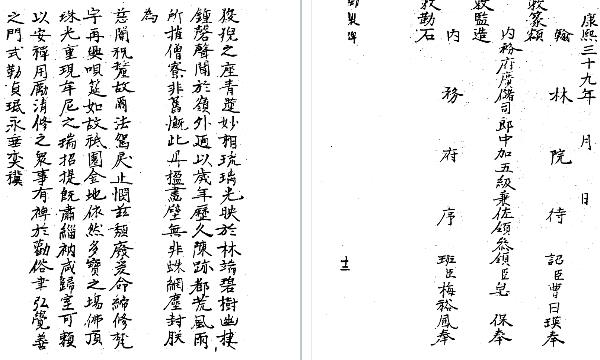 狻猊之座青蓮妙相琉璃光映於林端碧樹幽棲
鐘磬聲聞於嶺外迺以歲年歷久陳跡都荒風雨
所摧僧寮非舊慨此丹楹畫壁無非蛛網塵封朕
為
慈闈祝釐故爾法駕戾止憫茲頹廢爰命締修梵
宇再興唄筵如故祇園金地依然多寶之場佛頂
珠光重現牟尼之瑞招提既肅緇衲咸歸室可賴
以安禪用勵清修之衆事有裨於勸俗聿弘覺善
之門式勒貞珉永垂奕禩
康熙三十九年 月 日
翰林院待詔臣曹日瑛奉
敕篆額
內務府廣儲司郎中加五級兼佐領叅領臣皂保奉
敕監造
內務府序班臣梅裕鳳奉
敕勒石
十二